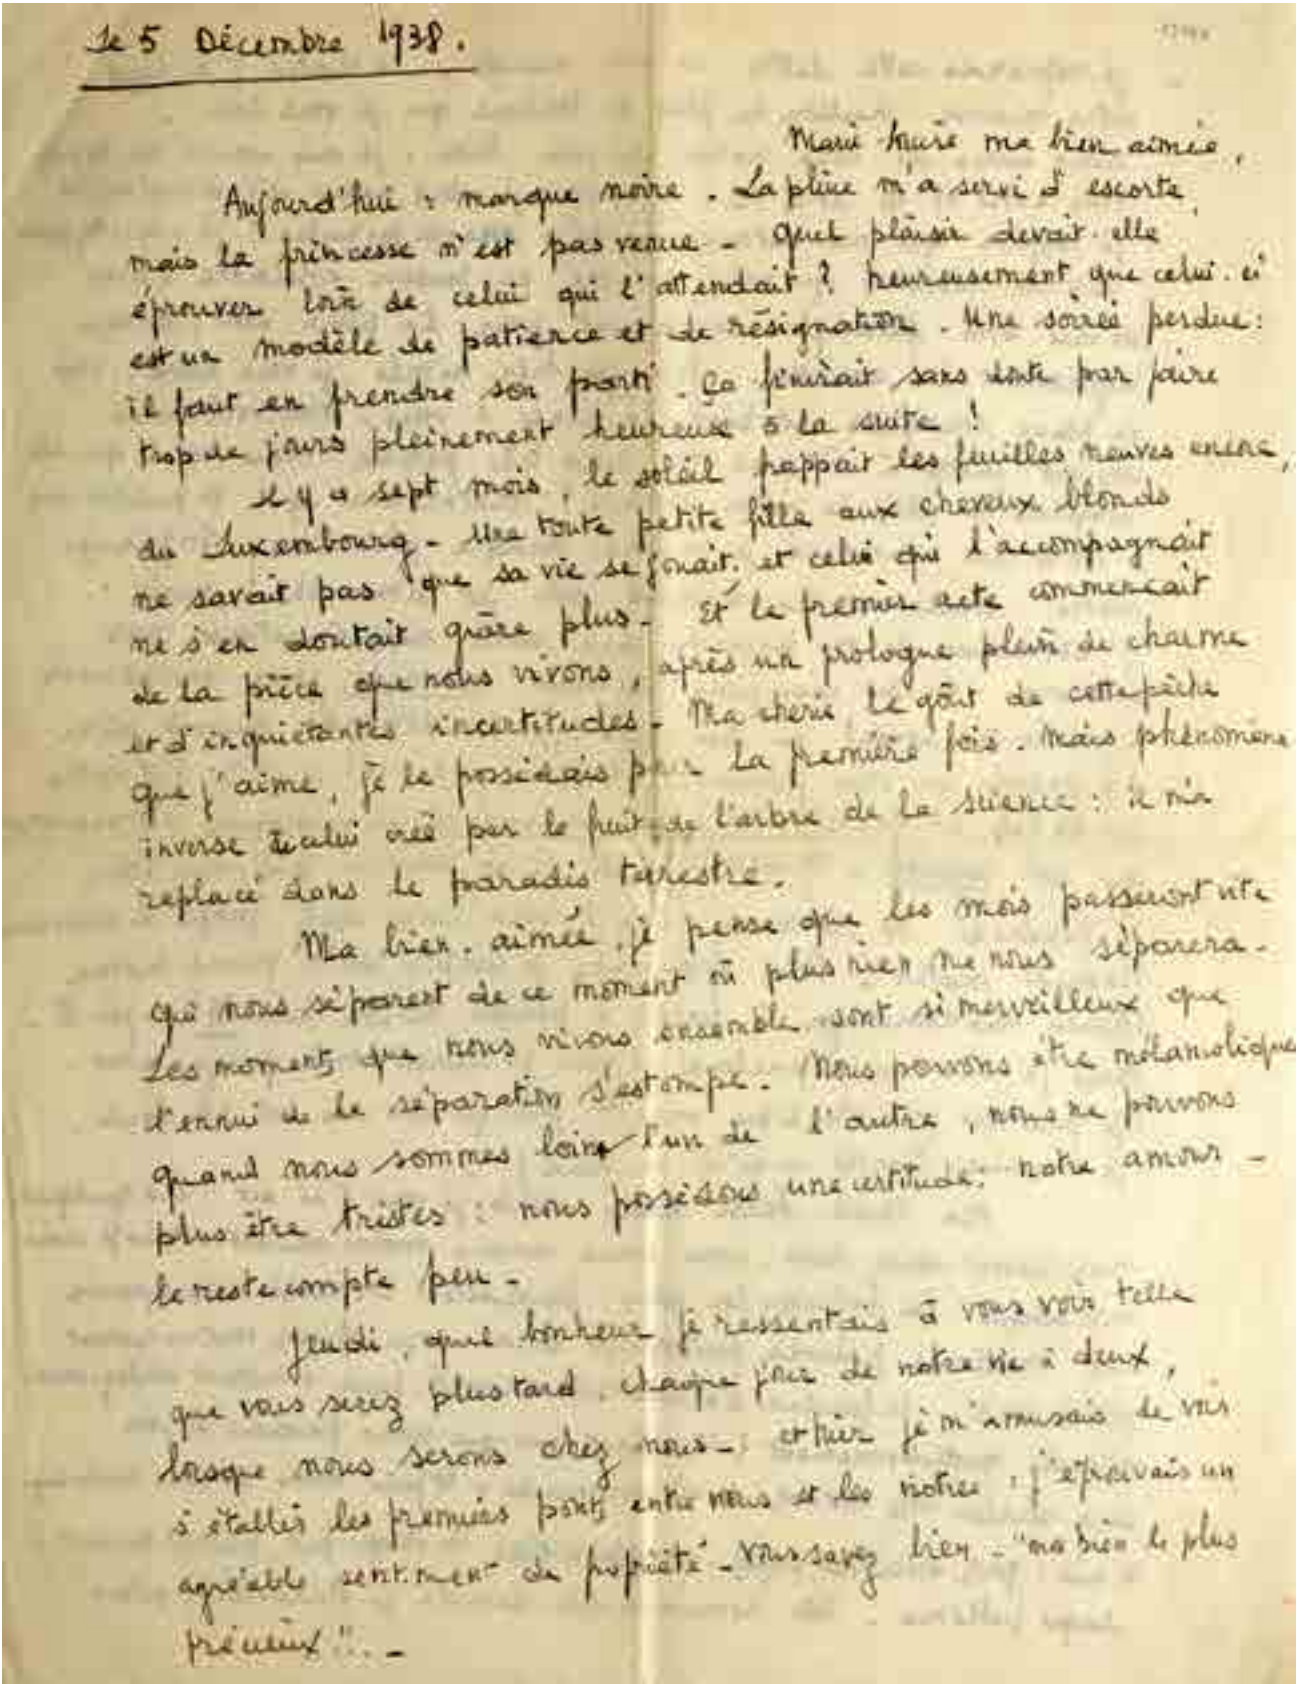 Le 5 Décembre 1938.
Marie Louise ma bien aimée,
Aujourd'hui : marque noire. La pluie m'a servi d'escorte,
mais la princesse n'est pas venue - quel plaisir devait-elle
éprouver loin de celui qui l'attendait ? heureusement que celui-ci
est un modèle de patience et de résignation. Une soirée perdue :
il faut en prendre son parti. Ça finirait sans doute par faire
trop de jours pleinement heureux à la suite !
Il y a sept mois, le soleil frappait les feuilles neuves encore,
du Luxembourg - Une toute petite fille aux cheveux blonds
ne savait pas que sa vie se jouait, et celui qui l'accompagnait
ne s'en doutait guère plus - Et le premier acte commençait
de la pièce que nous vivons, après un prologue plein de charme
et d'inquiétantes incertitudes - Ma chérie, le goût de cette pêche
que j'aime, je le possédais pour la première fois. Mais phénomène
inverse de celui créé par le fruit de l'arbre de la science : il m'a
replacé dans le paradis terestre.
Ma bien-aimée, je pense que les mois passeront vite
qui nous séparent de ce moment où plus rien ne nous séparera -
Les moments que nous vivons ensemble sont si merveilleux que
l'ennui de la séparation s'estompe. Nous pouvons être mélancoliques
quand nous sommes loin l'un de l'autre, nous ne pouvons
plus être tristes : nous possédons une certitude : notre amour -
le reste compte peu -
Jeudi, quel bonheur je ressentais à vous voir telle
que vous serez plus tard, chaque jour de notre vie à deux,
lorsque nous serons chez nous - et hier je m'amusais de voir
s'établir les premiers ponts entre nous et les notres : j'éprouvais un
agréable sentiment de propriété - vous savez bien - "mon bien le plus
précieux". -